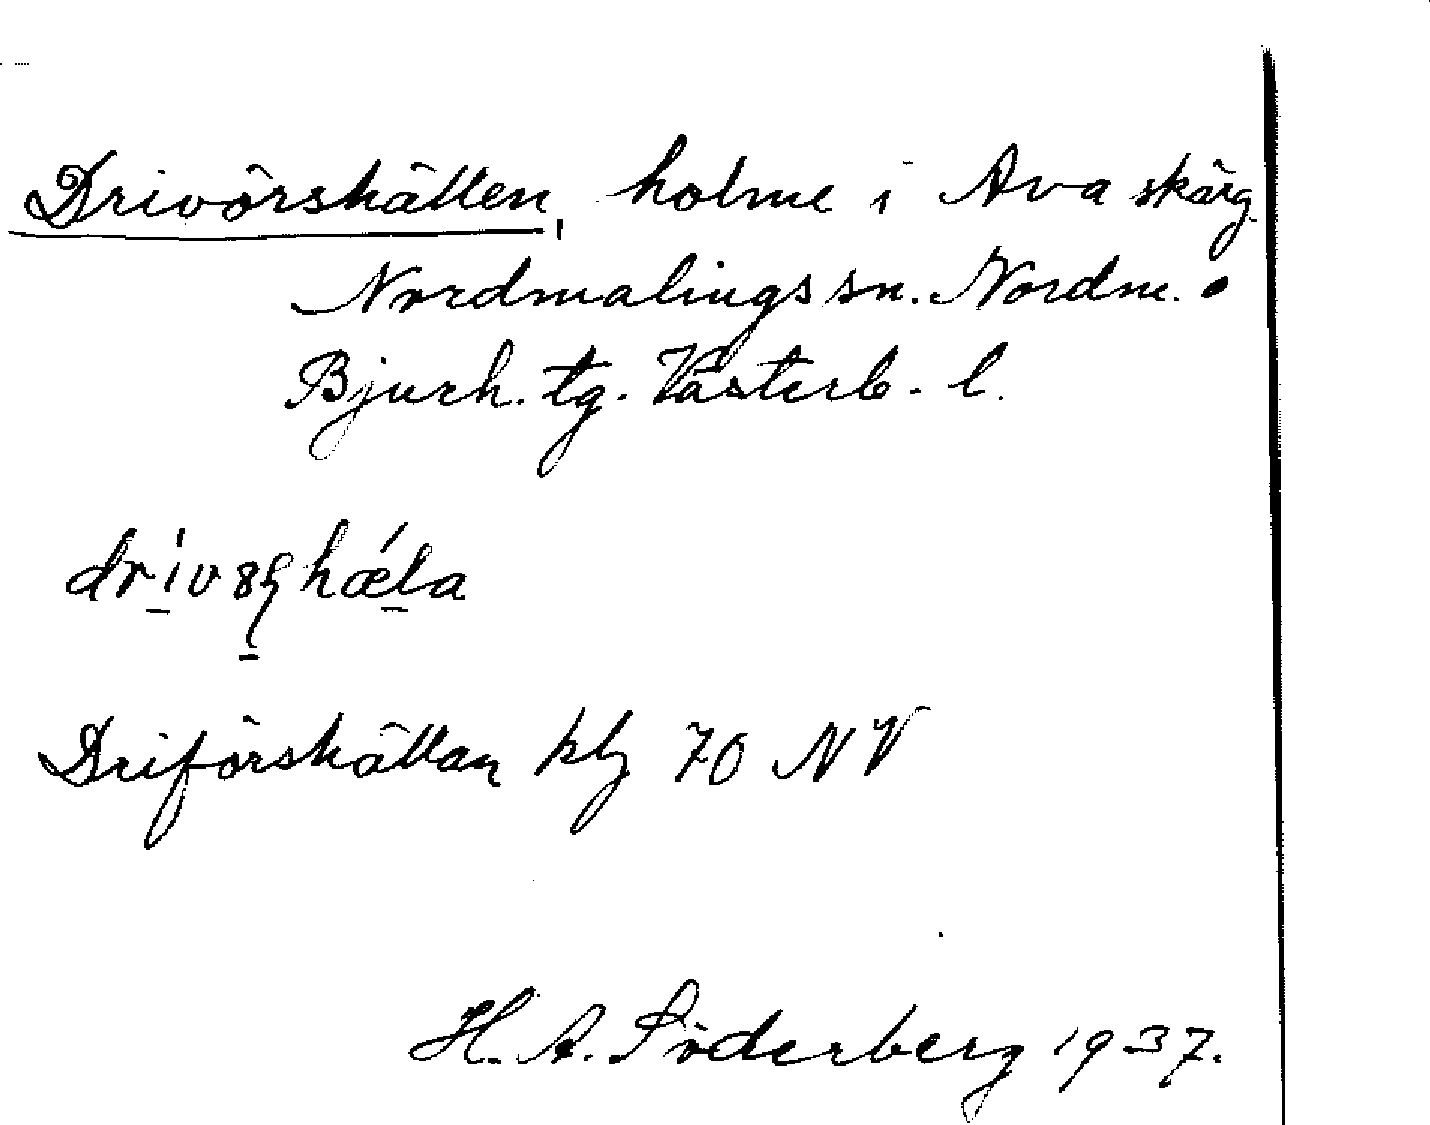 Drivörshällen, holme i Ava skärg.
Nordmalings sn. Nordm. o
Bjurh. tg. Västerb. l.
Driförshällan klj 70 NV
H. A. Söderberg 1937.